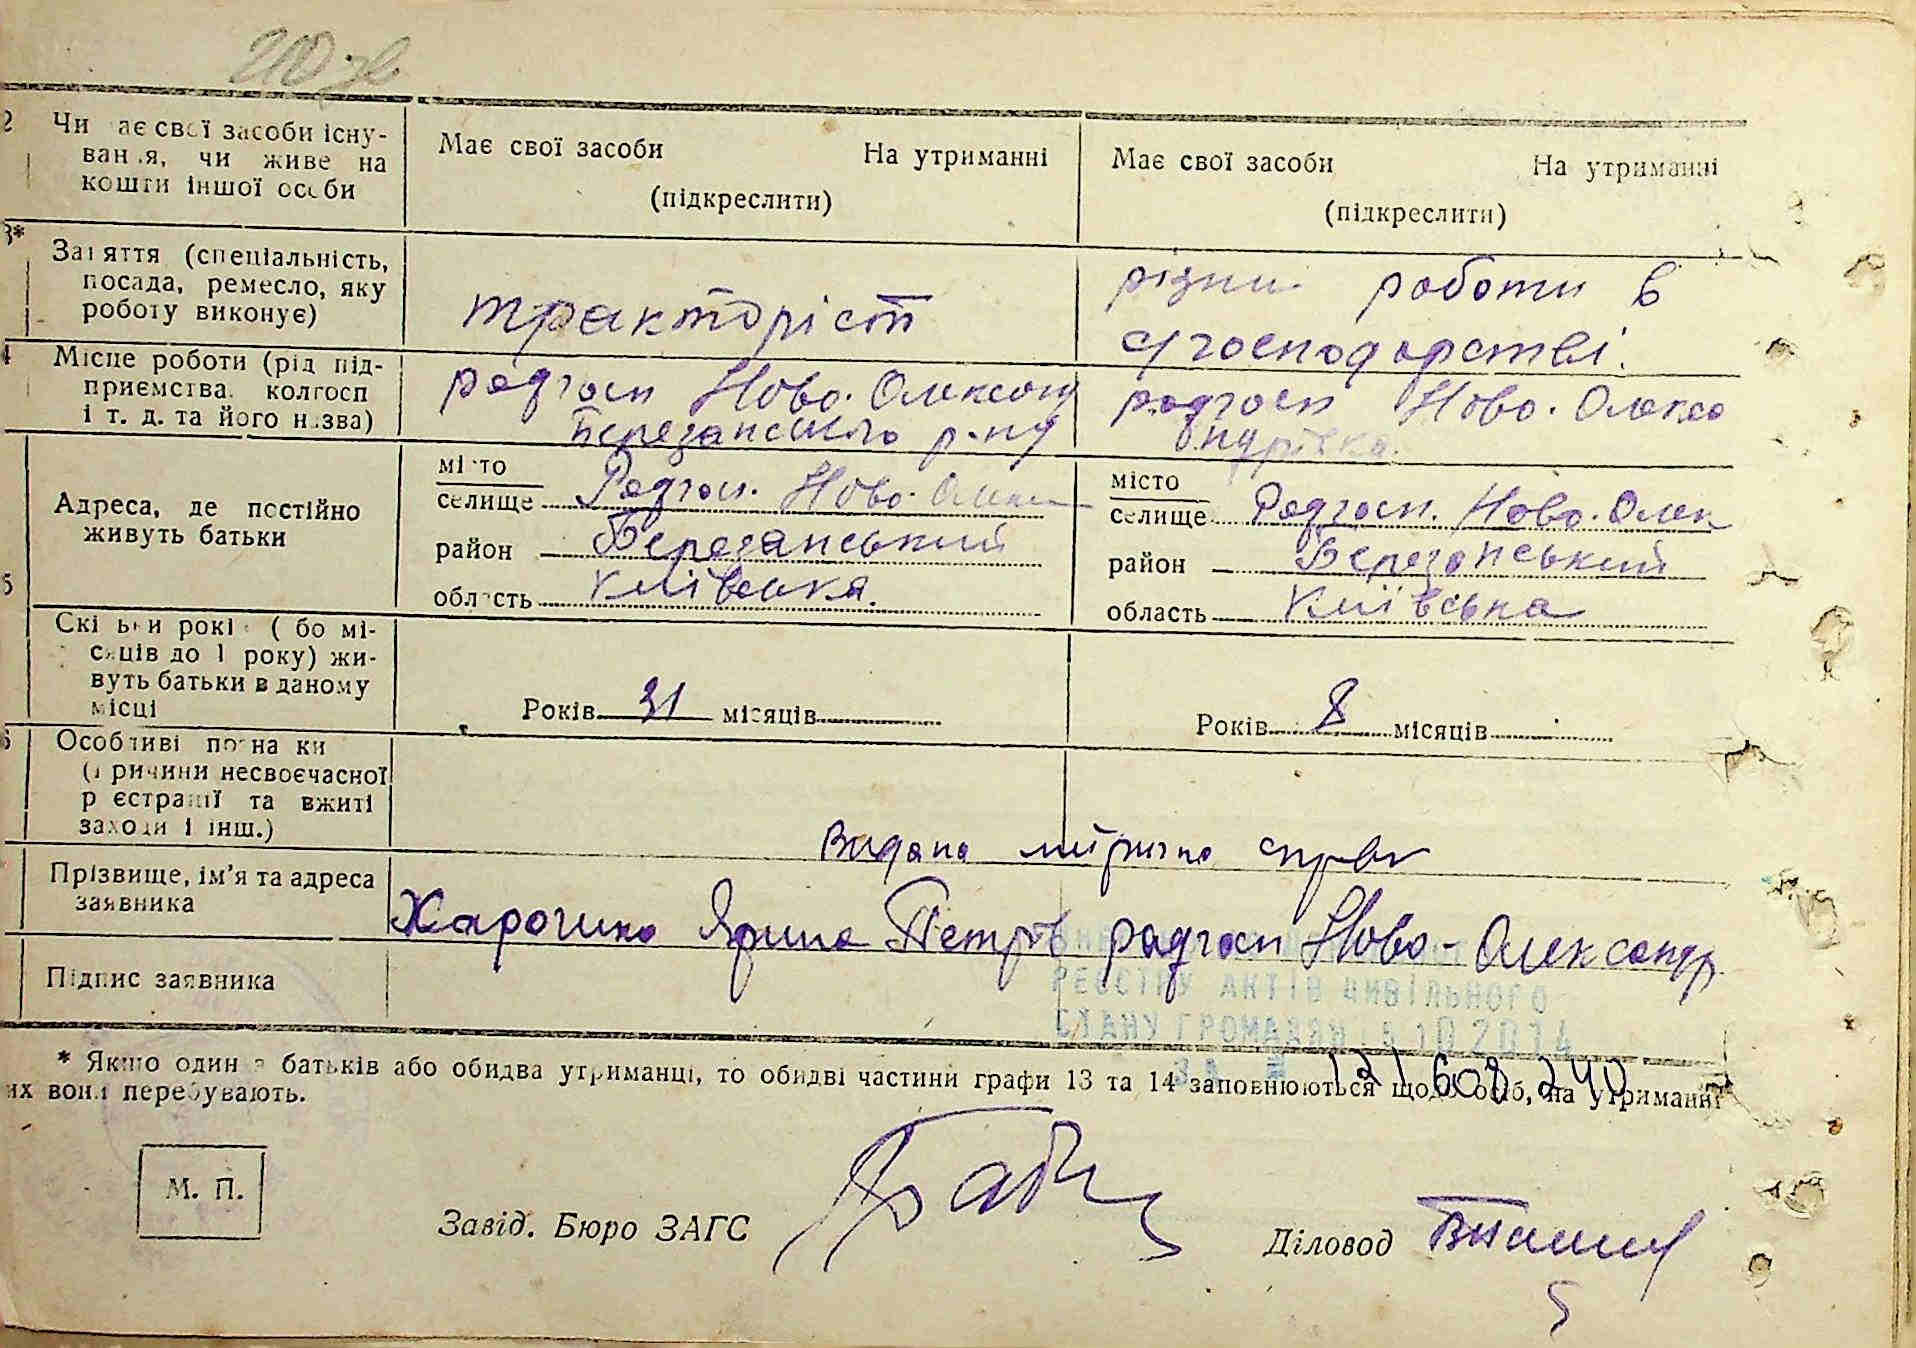 210 зв
2 Чи має свої засоби існу-
вання, чи живе на
кошти іншої особи
Має свої засоби На утриманні
(підкреслити)
Має свої засоби На утриманні
(підкреслити)
3* Заняття (спеціальність,
посада, ремесло, яку
роботу виконує)
тракторіст
різни роботи в
с/господарстві.
4 Місце роботи (рід під-
приємства, колгосп
і т. д. та його назва)
радгосп Ново-Олексан
Березанського р-ну
радгосп Ново-Олекса
ндрівка.
5 Адреса, де постійно
живуть батьки
місто
селище Радгосп. Ново-Олекс
район Березанський
область Київська.
місто
селище Радгосп. Ново-Олек
район Березанський
область Київська
Скільки років (або мі-
сяців до 1 року) жи-
вуть батьки в даному
місці
Років 31 місяців
Років 8 місяців
6 Особливі познаки
(причини несвоєчасної
реєстрації та вжиті
заходи і інш.)
Видана
Прізвище, ім'я та адреса
заявника
Ярина Петрів радгосп Ново-Олександр
Підпис заявника
РЕЄСТРУ АКТІВ ЦИВІЛЬНОГО
СТАНУ ГРОМАДЯН 10 2014
ЗА №
* Якщо один з батьків або обидва утриманці, то обидві частини графи 13 та 14 заповнюються щодо осіб, на утриманні
их вони перебувають.
М. П.
Завід. Бюро ЗАГС
Діловод